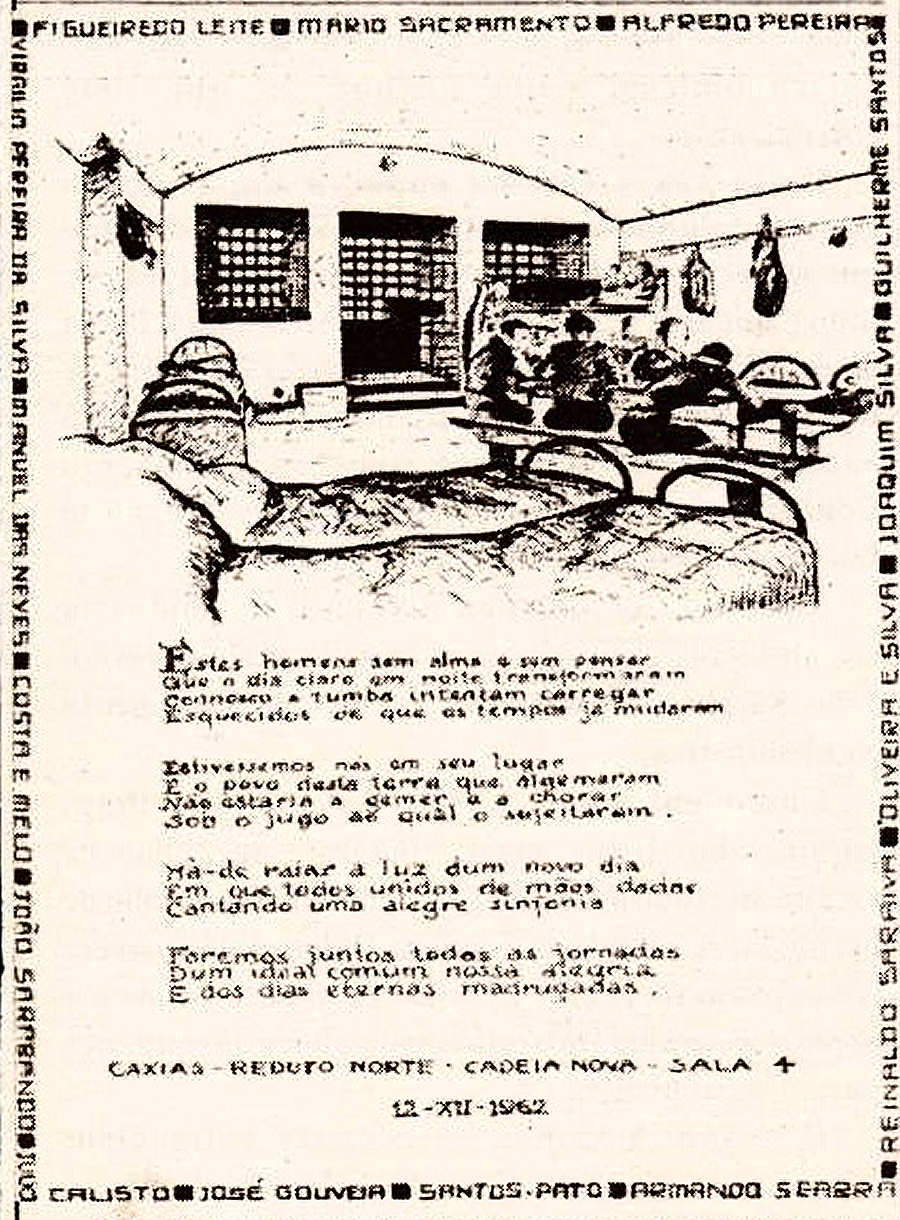 FIGUEIREDO LEITE ■ MARIO SACRAMENTO ■ ALFREDO PEREIRA ■
GUILHERME SANTOS
REINALDO SARAIVA ■ OLIVEIRA E SILVA ■ JOAQUIM SILVA ■
VIRGILIO PEREIRA DA SILVA ■ MANUEL DAS NEVES ■ COSTA E MELO ■ JOÃO SARABANDO ■ JULIO
Estes homens sem alma e sem pensar
Que o dia claro em noite transformaram
Connosco a tumba intentam carregar
Esquecidos de que os tempos já mudaram
Estivessemos nós em seu lugar
E o povo desta terra que algemaram
Não estaria a gemer, a chorar
Sob o jugo ao qual o sujeitaram.
Há-de raiar a luz dum novo dia
Em que todos unidos de mãos dadas
Cantando uma alegre sinfonia
Faremos juntos todas as jornadas
Dum ideal comum nossa alegria
E dos dias eternas madrugadas.
CAXIAS - REDUTO NORTE - CADEIA NOVA - SALA 4
12-XII-1962
CALISTO ■ JOSÉ GOUVEIA ■ SANTOS PATO ■ ARMANDO SEABRA